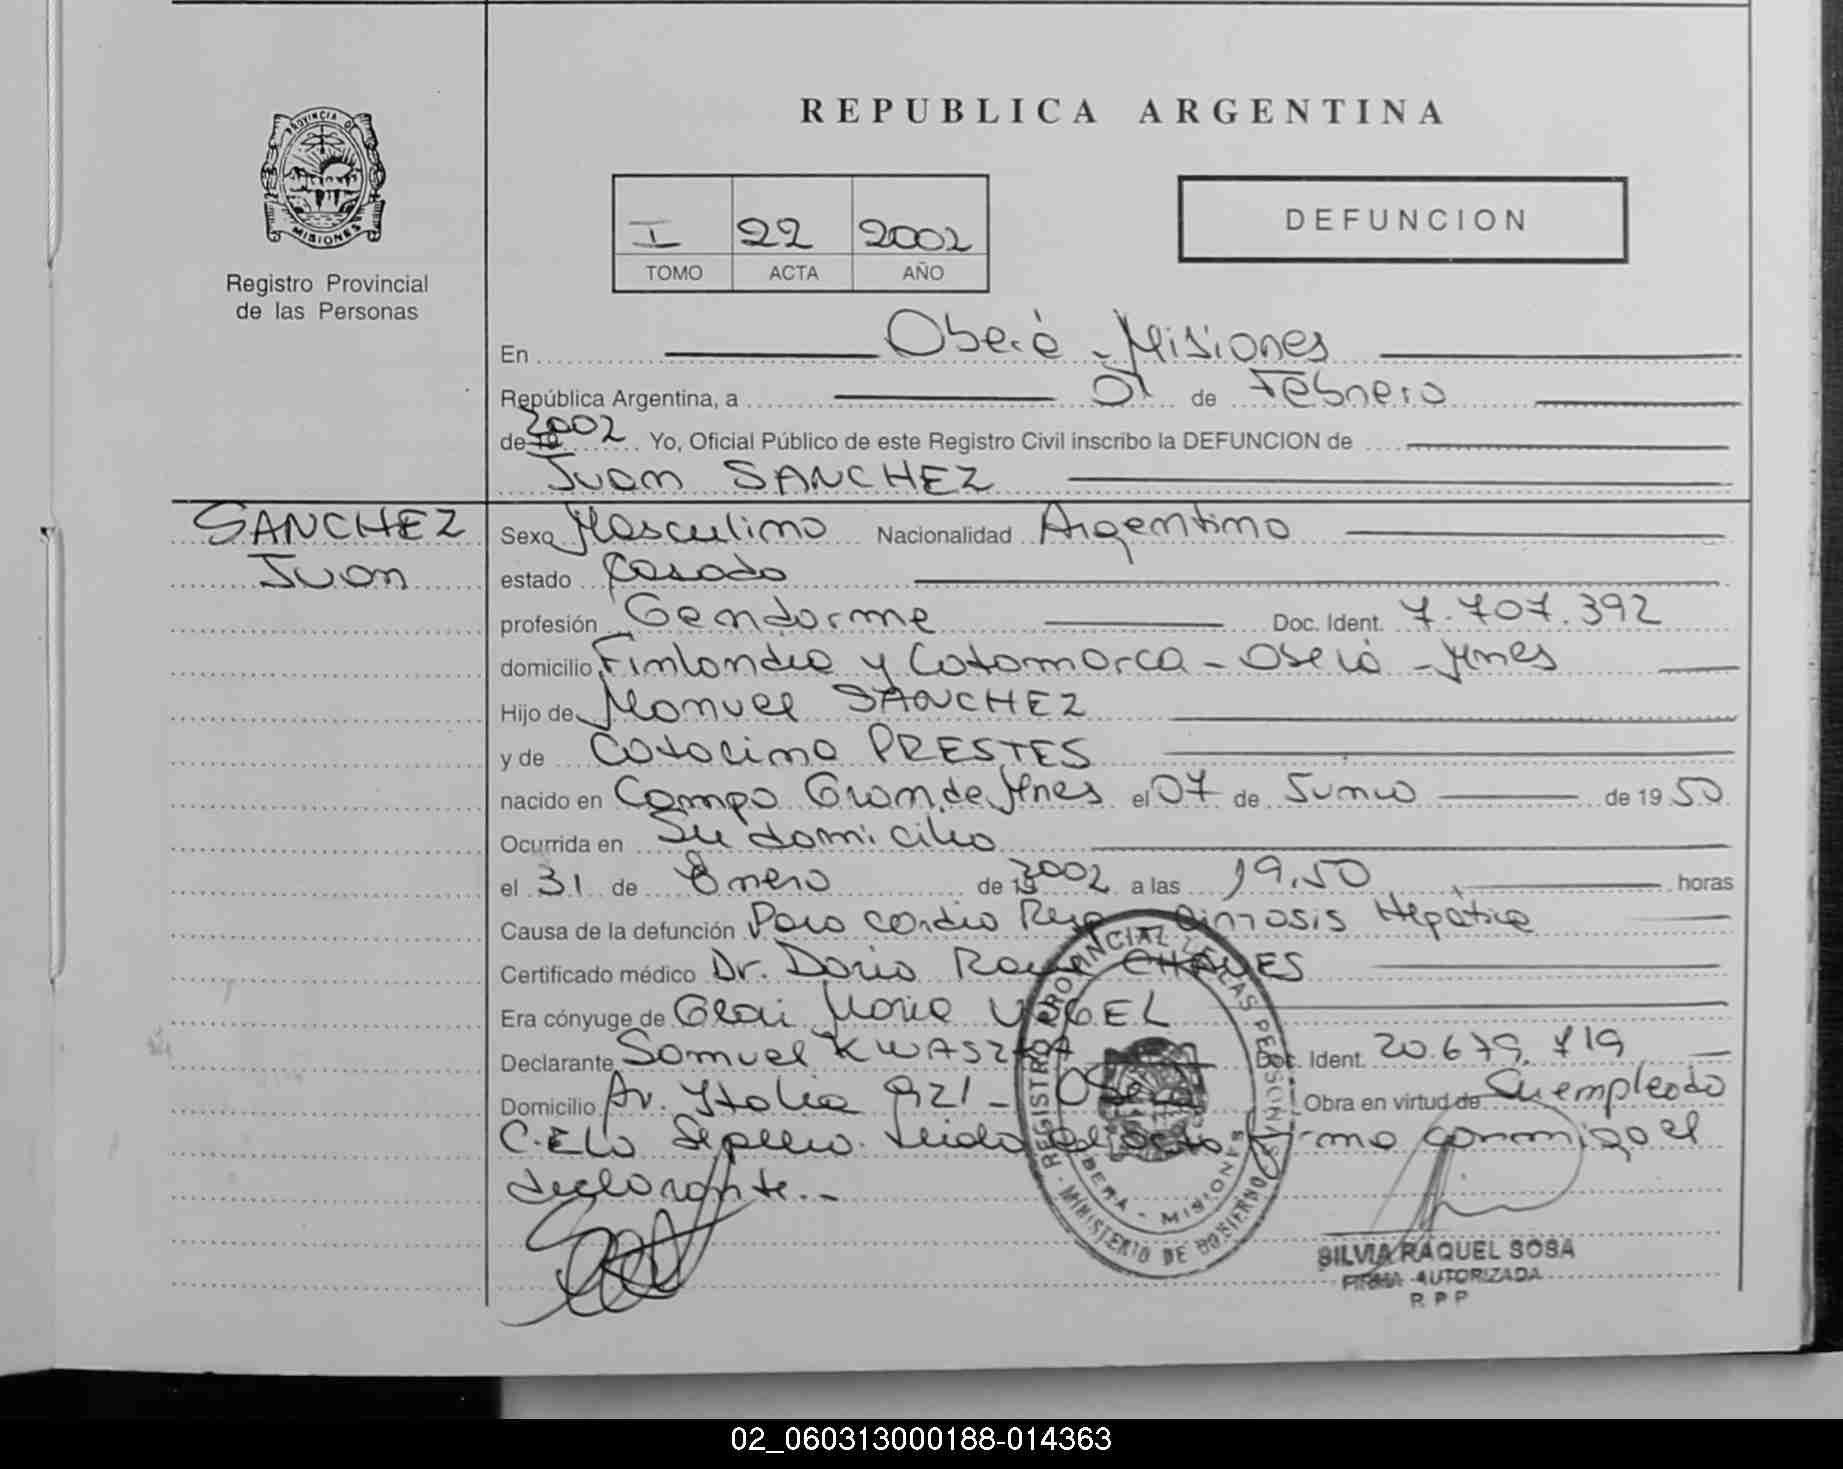 REPUBLICA ARGENTINA
PROVINCIA DE
MISIONES
Registro Provincial
de las Personas
I 22 2002
TOMO ACTA AÑO
DEFUNCION
En Oberá - Misiones
República Argentina, a 01 de Febrero
de 19 2002 Yo, Oficial Público de este Registro Civil inscribo la DEFUNCION de
Juan SANCHEZ
SANCHEZ
Juan
Sexo Masculino Nacionalidad Argentino
estado Casado
profesión Gendarme Doc. Ident. 7.707.392
domicilio Finlandia y Catamarca - Oberá - Mnes
Hijo de Manuel SANCHEZ
y de Catalina PRESTES
nacido en Campo Grande Mnes el 07 de Junio de 19 50
Ocurrida en Su domicilio
el 31 de Enero de 19 2002 a las 19,50 horas
Causa de la defunción Paro cardio Resp Cirrosis Hepática
Certificado médico Dr. Dario CHAVES
Era cónyuge de Maria
Declarante Samuel Doc. Ident. 20.679.719
Domicilio Av. Italia 921 - Oberá Obra en virtud de Su empleado
C.E.L.O Sepelio. Leida el acta firma conmigo el
declarante.-
REGISTRO PROVINCIAL DE LAS PERSONAS
MINISTERIO DE GOBIERNO
OBERA - MISIONES
SILVIA RAQUEL SOSA
FIRMA AUTORIZADA
R P P
02_060313000188-014363